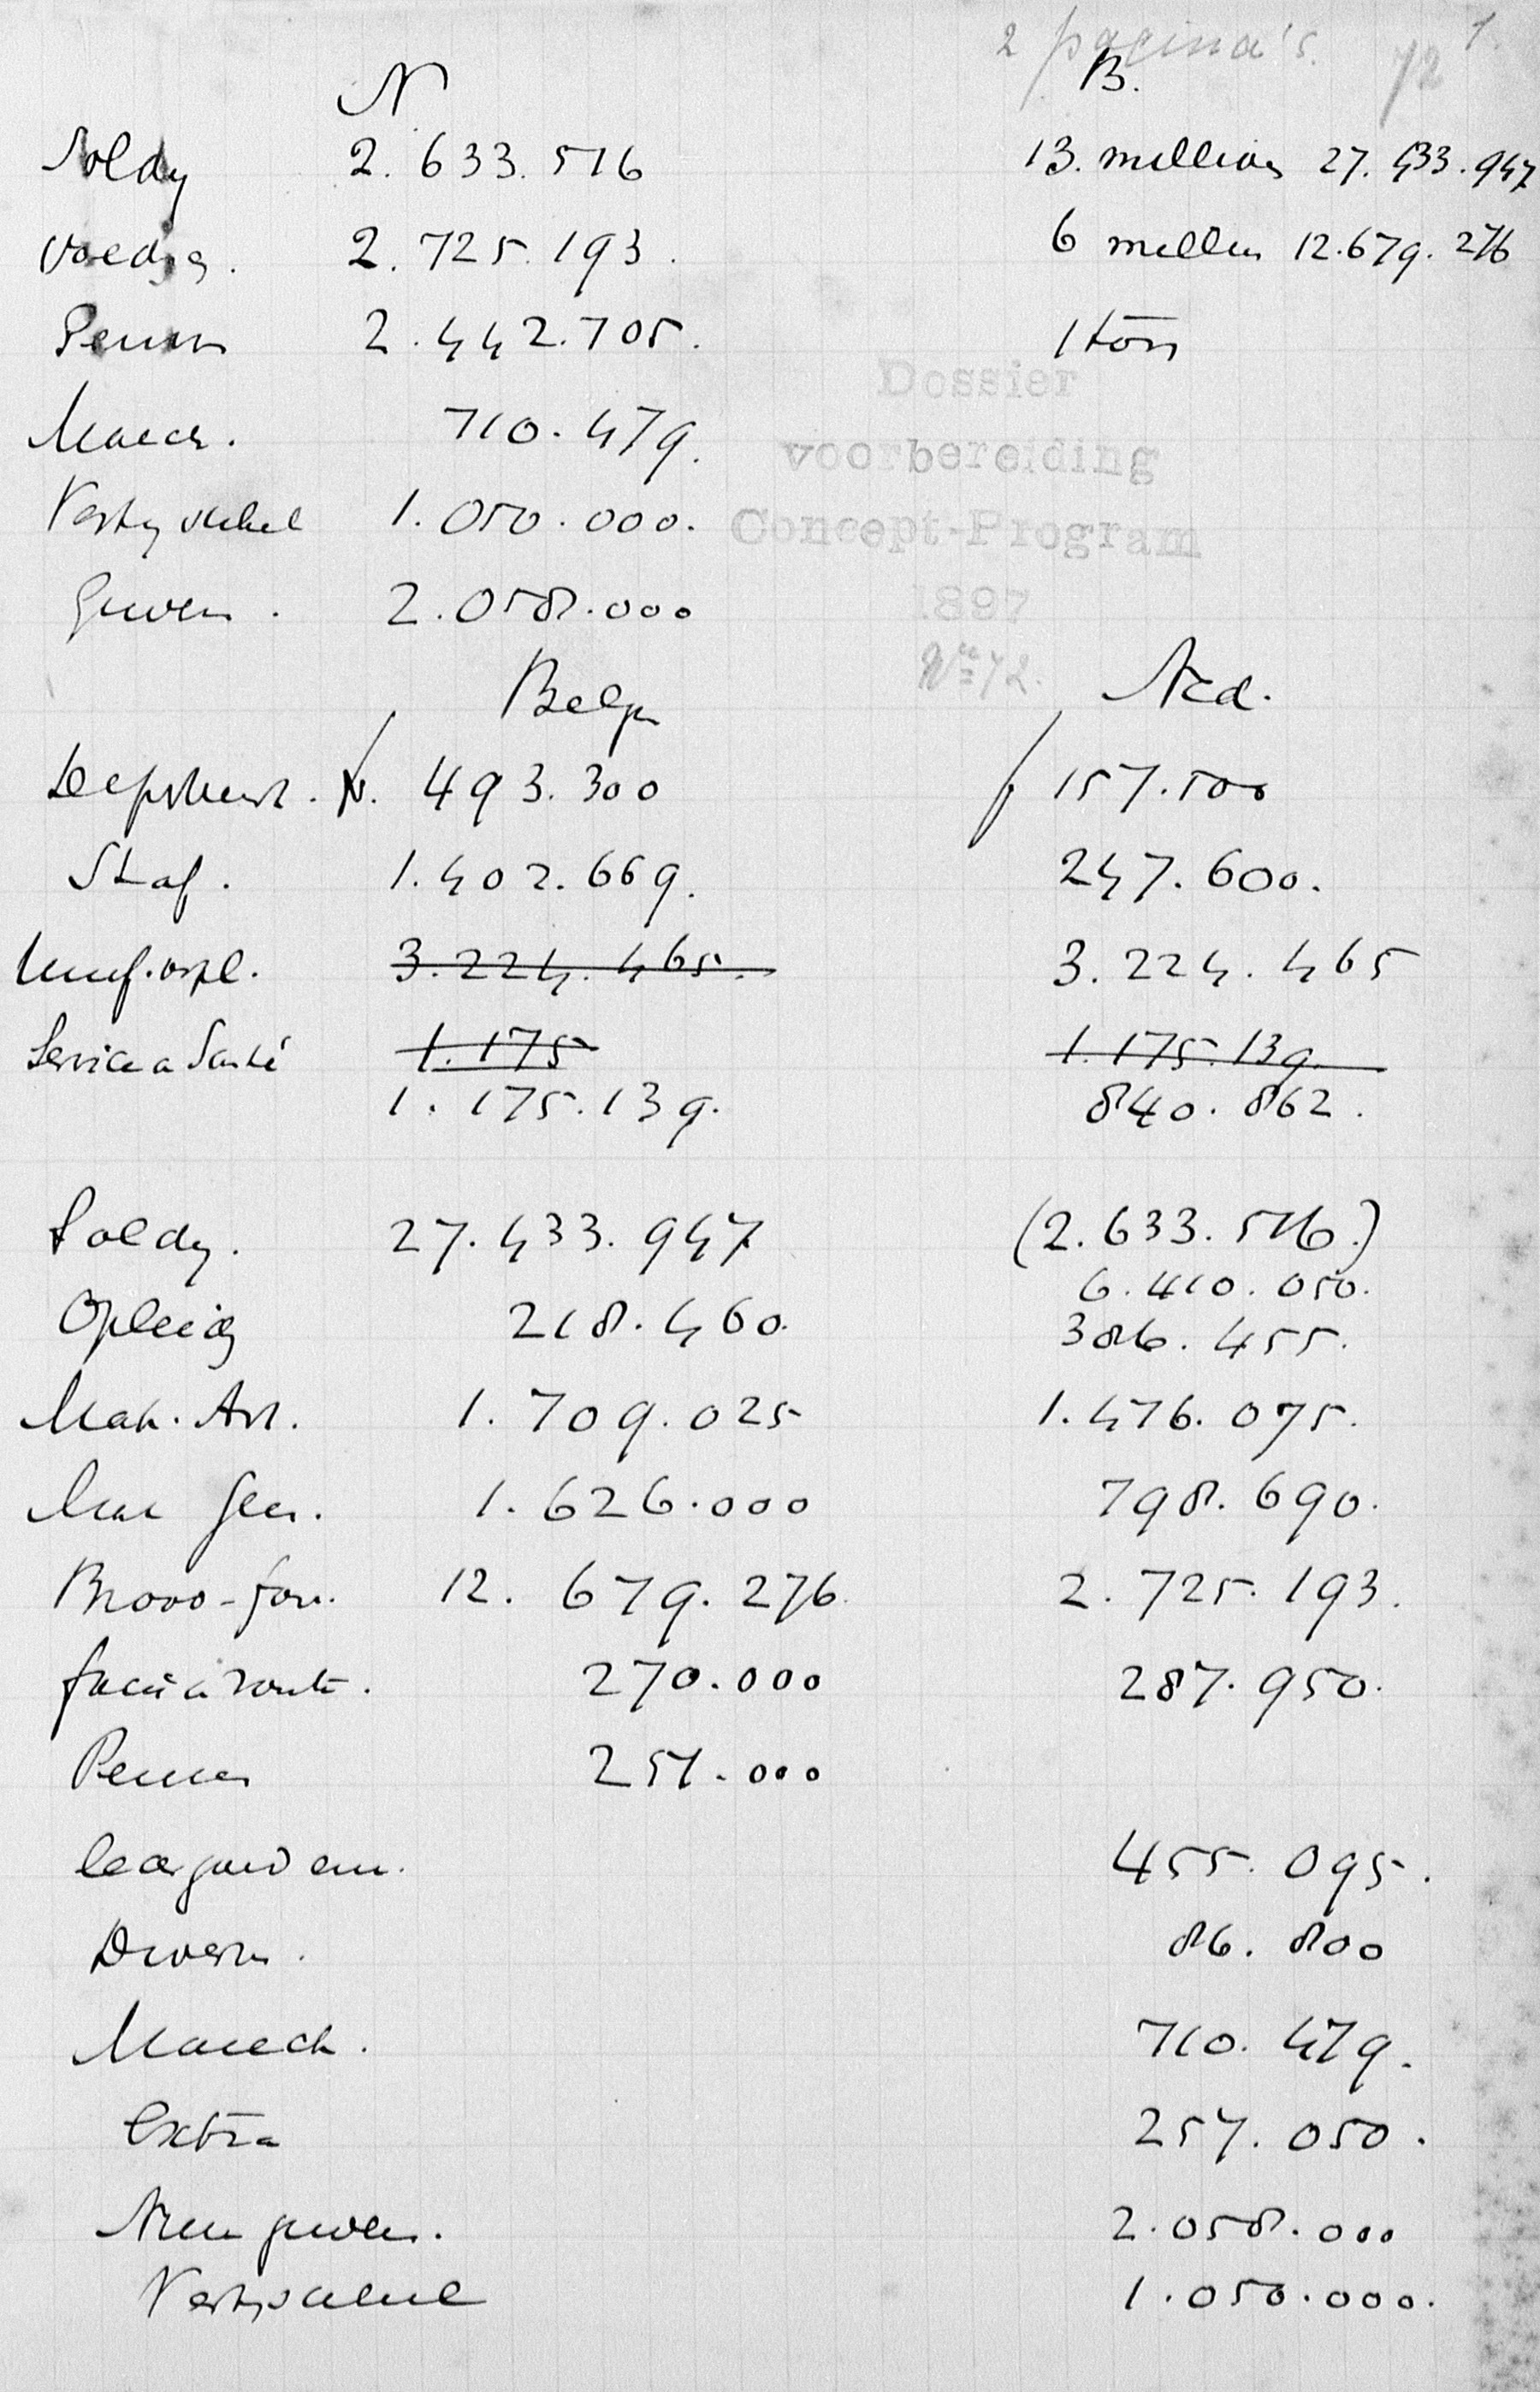 2 pagina's. 72 1.
N B.
Soldij 2.633.516 13. million 27.433.947
Voeding. 2.725.193. 6 million 12.679.276
Pensn 2.442.705. 1 ton
Dossier
Marech. 710.479.
voorbereiding
Vestingstelsel 1.050.000.
Concept-Program
Geweren. 2.058.000
1897
No 72.
Belge Ned.
Departement. fr. 493.300 f 157.500
Staf. 1.402.669. 247.600.
3.224.465. 3.224.465
Service a Santé 1.175 1.175.139.
1.175.139. 840.862.
Soldij. 27.433.947 (2.633.516.)
6.410.050.
Opleidg 218.460. 386.455.
Mat. Art. 1.709.025 1.476.075.
Mat Gen. 1.626.000 798.690.
12.679.276. 2.725.193.
270.000 287.950.
251.000
455.095.
Diversn. 86.800
Marech. 710.479.
Extra 257.050.
Nieuw geweer. 2.058.000
Vestingstelsel 1.050.000.